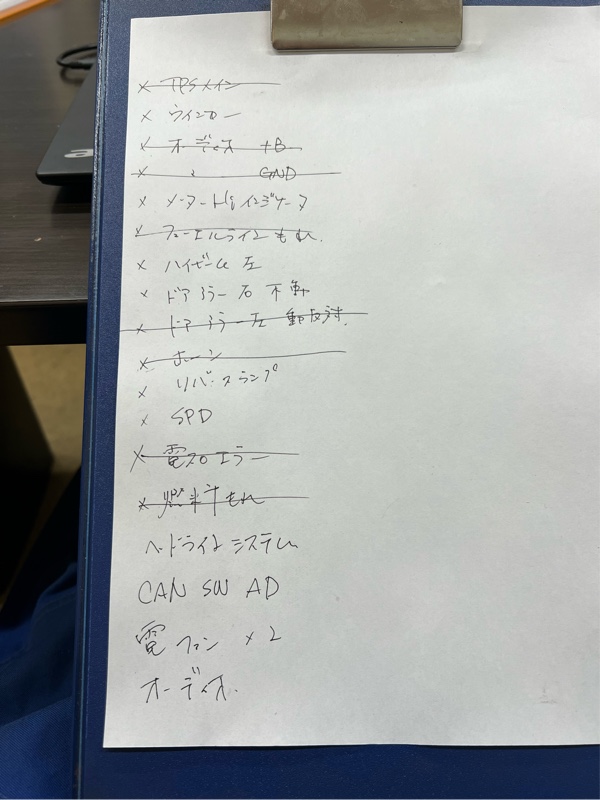 × TPSメイン
× ウインカー
× オーディオ +B
× 〃 GND
× メーター Hi インジケータ
× フューエルラインもれ.
× ハイビーム 左
× ドアミラー 右 不動
× ドアミラー左 動反対.
× ホーン
× リバースランプ
× SPD
× 電スロ エラー
× 燃料もれ
ヘッドライトシステム
CAN SW AD
電ファン ×2
オーディオ.